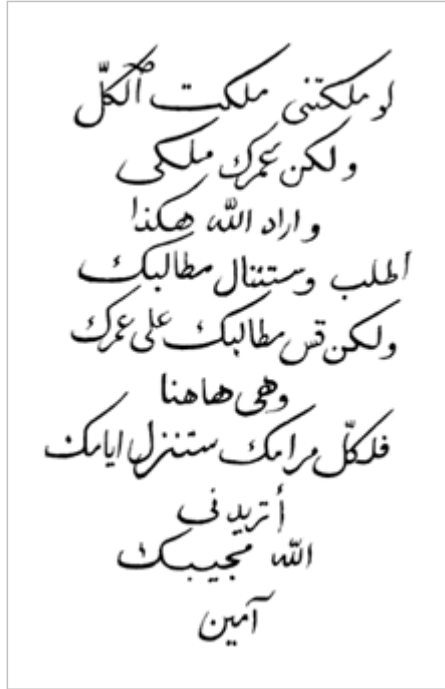 لو ملكتني ملكت ٱلكلّ
ولكن عمرك ملكي
واراد الله هكذا
أطلب وستنال مطالبك
ولكن قس مطالبك على عمرك
وهي هاهنا
فلكلّ مرامك ستنزل ايامك
أتريدني
الله مجيبك
آمين